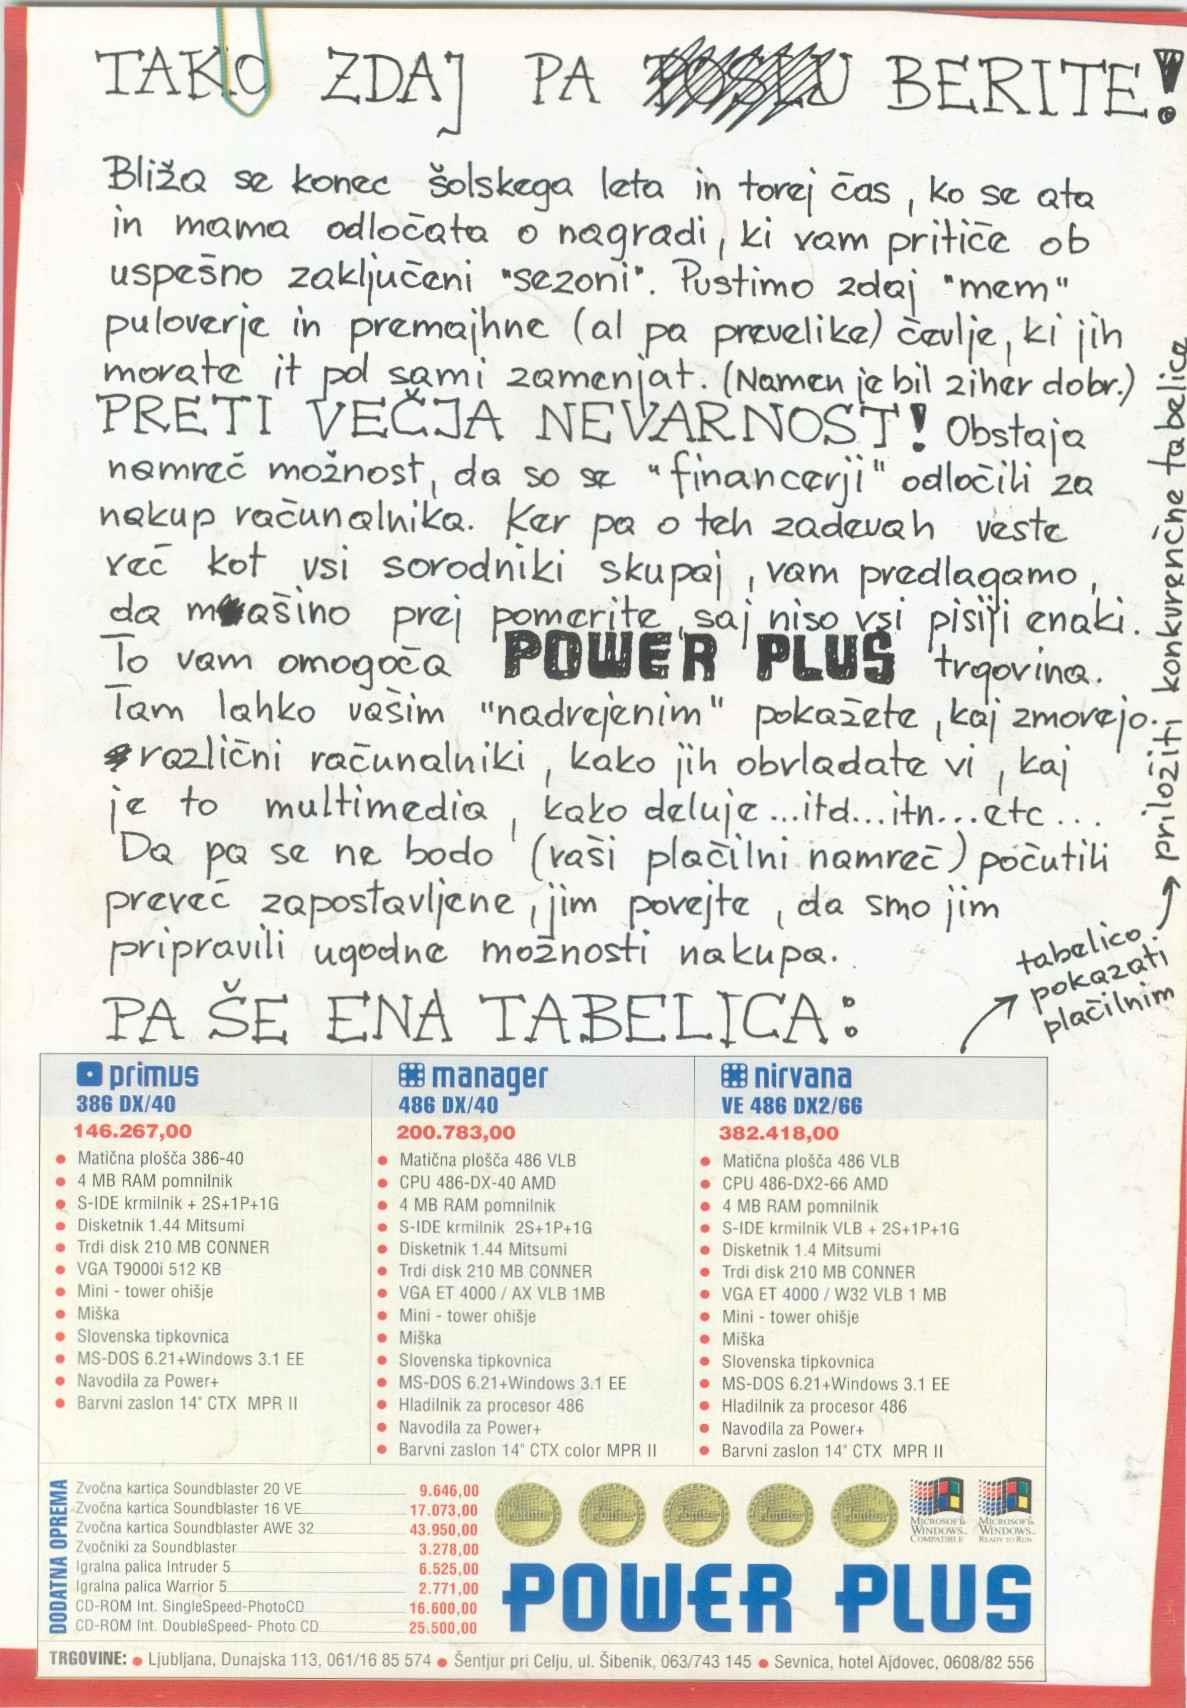 TAKO ZDAJ PA POSLU BERITE!
Bliža se konec šolskega leta in torej čas, ko se ata
in mama odločata o nagradi, ki vam pritiče ob
uspešno zaključeni "sezoni". Pustimo zdaj "mem"
puloverje in premajhne (al pa prevelike) čevlje, ki jih
morate it pol sami zamenjat. (Namen je bil ziher dobr.)
PRETI VEČJA NEVARNOST! Obstaja
namreč možnost, da so se "financerji" odločili za
nakup računalnika. Ker pa o teh zadevah veste
več kot vsi sorodniki skupaj, vam predlagamo,
da mašino prej pomerite, saj niso vsi pisiji enaki.
To vam omogoča POWER PLUS trgovina.
Tam lahko vašim "nadrejenim" pokažete, kaj zmorejo
različni računalniki, kako jih obvladate vi, kaj
je to multimedia, kako deluje...itd...itn...etc...
Da pa se ne bodo (vaši plačilni namreč) počutili
preveč zapostavljene, jim povejte, da smo jim
pripravili ugodne možnosti nakupa.
PA ŠE ENA TABELICA:
tabelico
pokazati
plačilnim
priložiti konkurenčne tabelice
primus
386 DX/40
146.267,00
Matična plošča 386-40
4 MB RAM pomnilnik
S-IDE krmilnik + 2S+1P+1G
Disketnik 1.44 Mitsumi
Trdi disk 210 MB CONNER
VGA T9000i 512 KB
Mini - tower ohišje
Miška
Slovenska tipkovnica
MS-DOS 6.21+Windows 3.1 EE
Navodila za Power+
Barvni zaslon 14" CTX MPR II
manager
486 DX/40
200.783,00
Matična plošča 486 VLB
CPU 486-DX-40 AMD
4 MB RAM pomnilnik
S-IDE krmilnik 2S+1P+1G
Disketnik 1.44 Mitsumi
Trdi disk 210 MB CONNER
VGA ET 4000 / AX VLB 1MB
Mini - tower ohišje
Miška
Slovenska tipkovnica
MS-DOS 6.21+Windows 3.1 EE
Hladilnik za procesor 486
Navodila za Power+
Barvni zaslon 14" CTX color MPR II
nirvana
VE 486 DX2/66
382.418,00
Matična plošča 486 VLB
CPU 486-DX2-66 AMD
4 MB RAM pomnilnik
S-IDE krmilnik VLB + 2S+1P+1G
Disketnik 1.4 Mitsumi
Trdi disk 210 MB CONNER
VGA ET 4000 / W32 VLB 1 MB
Mini - tower ohišje
Miška
Slovenska tipkovnica
MS-DOS 6.21+Windows 3.1 EE
Hladilnik za procesor 486
Navodila za Power+
Barvni zaslon 14" CTX MPR II
DODATNA OPREMA
Zvočna kartica Soundblaster 20 VE 9.646,00
Zvočna kartica Soundblaster 16 VE 17.073,00
Zvočna kartica Soundblaster AWE 32 43.950,00
Zvočniki za Soundblaster 3.278,00
Igralna palica Intruder 5 6.525,00
Igralna palica Warrior 5 2.771,00
CD-ROM Int. SingleSpeed-PhotoCD 16.600,00
CD-ROM Int. DoubleSpeed- Photo CD 25.500,00
MICROSOFT®
WINDOWS™
COMPATIBLE
MICROSOFT®
WINDOWS™
READY TO RUN
POWER PLUS
TRGOVINE: ● Ljubljana, Dunajska 113, 061/16 85 574 ● Šentjur pri Celju, ul. Šibenik, 063/743 145 ● Sevnica, hotel Ajdovec, 0608/82 556